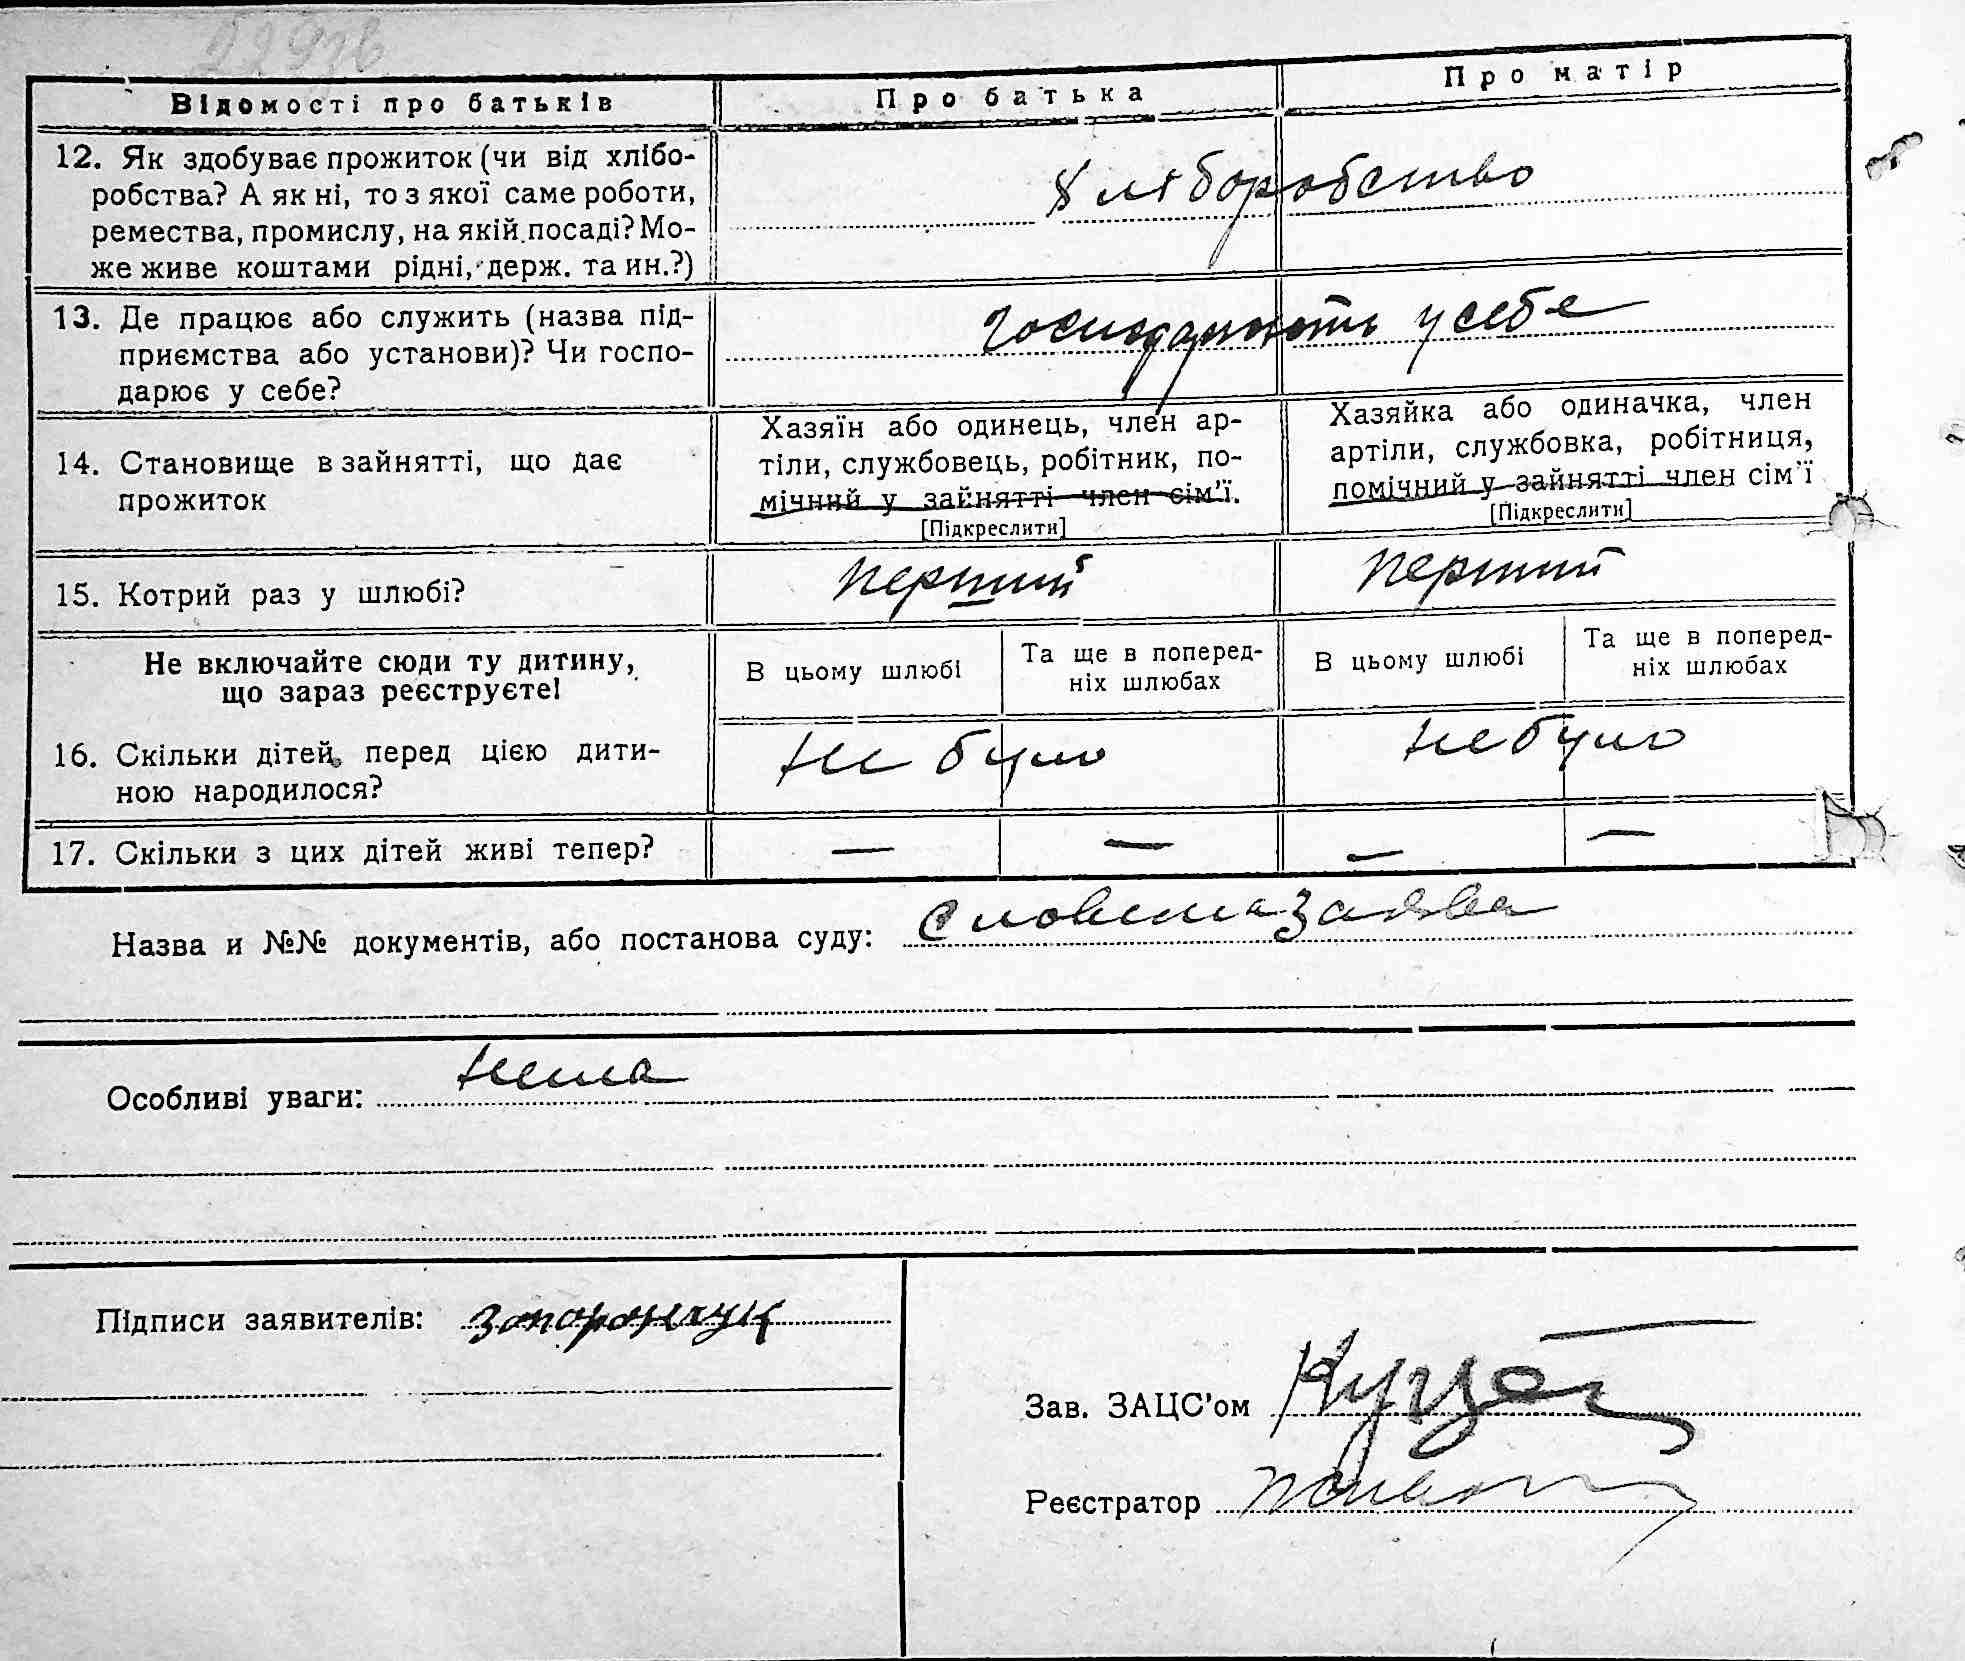 229зв
Відомості про батьків
Про батька
Про матір
12. Як здобуває прожиток (чи від хлібо-
робства? А як ні, то з якої саме роботи,
ремества, промислу, на якій посаді? Мо-
же живе коштами рідні, держ. та ин.?)
Хліборобство
13. Де працює або служить (назва під-
приємства або установи)? Чи госпо-
дарює у себе?
господарюють у себе
14. Становище в зайнятті, що дає
прожиток
Хазяїн або одинець, член ар-
тіли, службовець, робітник, по-
мічний у зайнятті член сім'ї.
[Підкреслити]
Хазяйка або одиначка, член
артіли, службовка, робітниця,
помічний у зайнятті член сім'ї
[Підкреслити]
15. Котрий раз у шлюбі?
перший
перший
Не включайте сюди ту дитину,
що зараз реєструєте!
В цьому шлюбі
Та ще в поперед-
ніх шлюбах
В цьому шлюбі
Та ще в поперед-
ніх шлюбах
16. Скільки дітей, перед цією дити-
ною народилося?
не було
не було
17. Скільки з цих дітей живі тепер?
— — — —
Назва и №№ документів, або постанова суду: словесна заява
Особливі уваги: нема
Підписи заявителів: Запорожчук
Зав. ЗАЦС'ом
Реєстратор